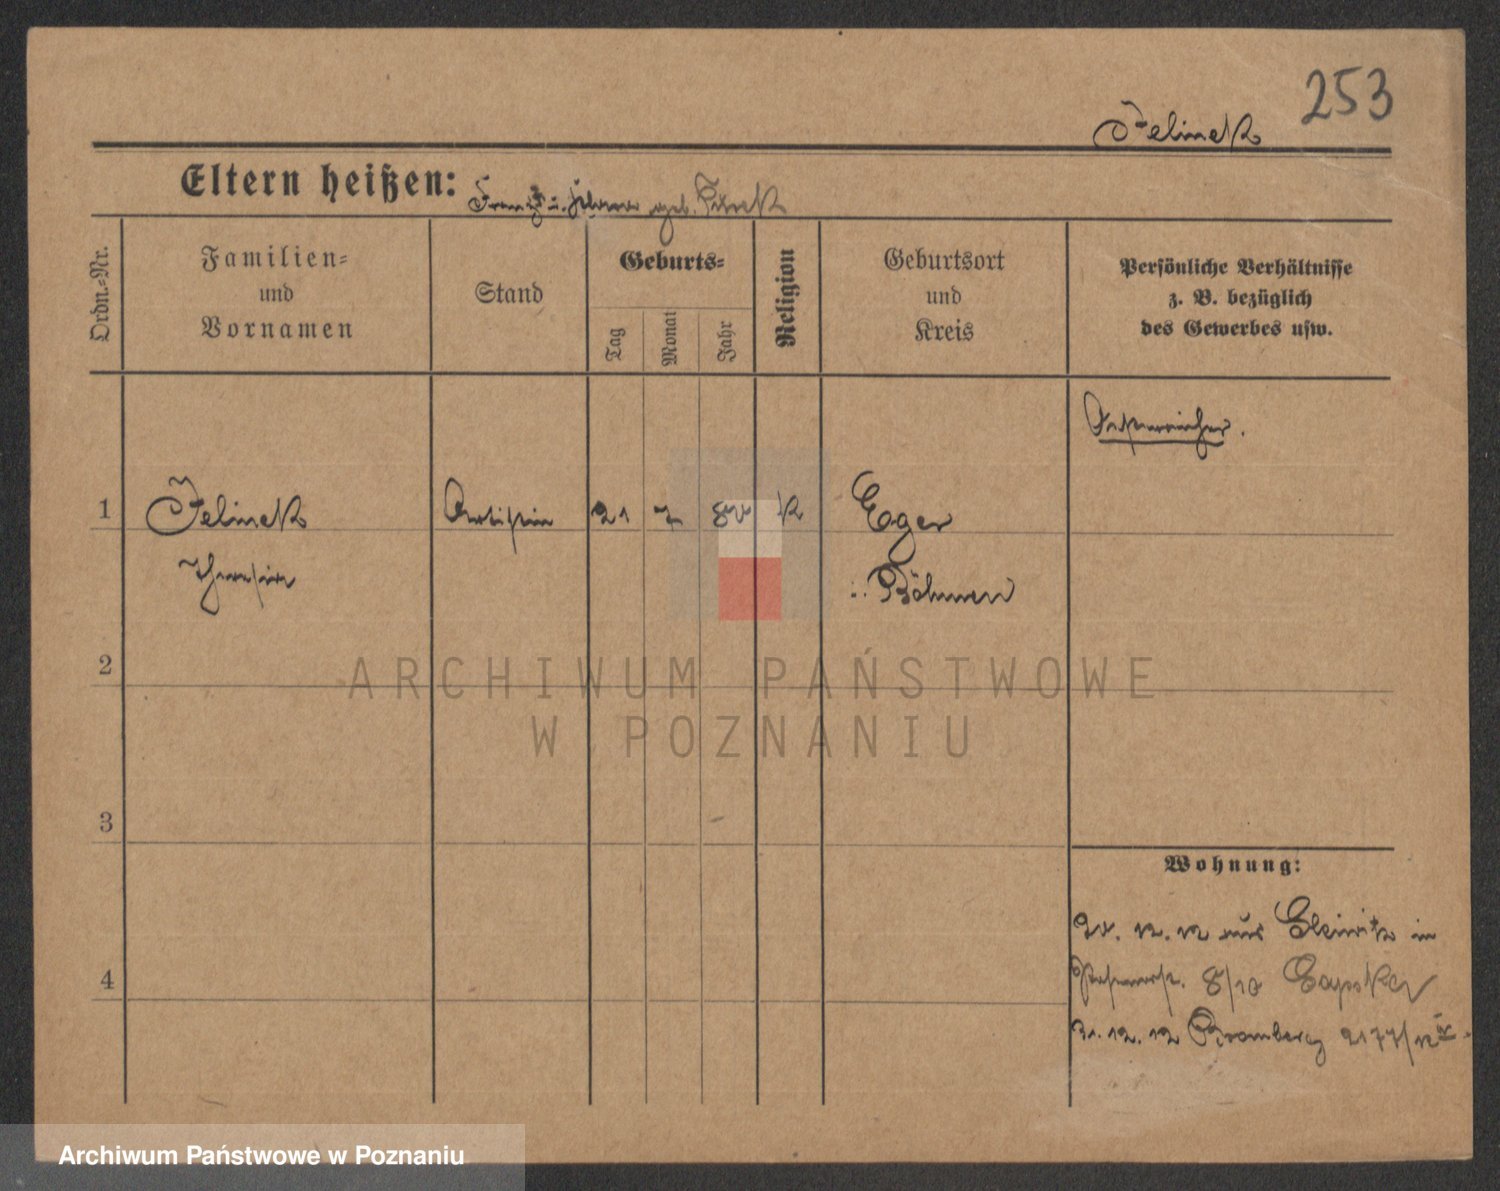 253
Jelinek
Eltern heißen: Franz u. geb.
Ordn.-Nr.
Familien-
und
Vornamen
Stand
Geburts-
Tag
Monat
Jahr
Religion
Geburtsort
und
Kreis
Persönliche Verhältnisse
z. B. bezüglich
des Gewerbes usw.
Oesterreicher.
1 Jelinek Artistin 21 7 k Eger
Theresia Böhmen
2
ARCHIWUM PAŃSTWOWE
W POZNANIU
3
Wohnung:
12.12 aus Gleiwitz in
8/10
4
31.12.12 Bromberg 2177/12
Archiwum Państwowe w Poznaniu